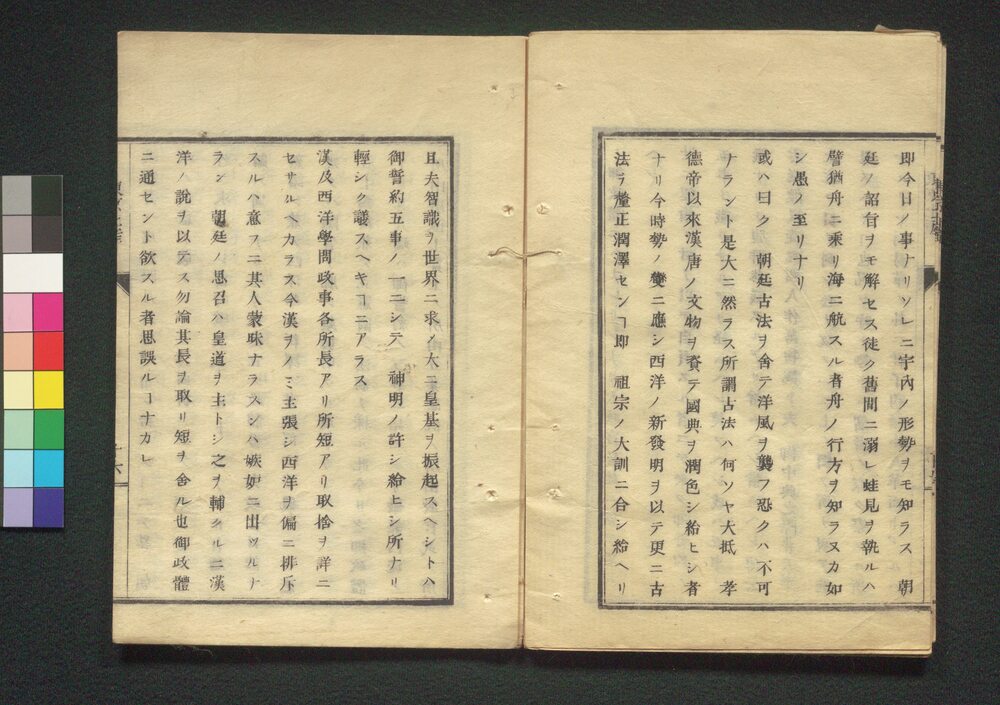 即今日ノ事ナリソレニ宇內ノ形勢ヲモ知ラス　朝
廷ノ詔旨ヲモ解セス徒ク舊聞ニ溺レ蛙見ヲ執ルハ
譬猶舟ニ乘リ海ニ航スル者舟ノ行方ヲ知ラヌカ如
シ愚ノ至リナリ
或ハ曰ク　朝廷古法ヲ舍テ洋風ヲ襲フ恐クハ不可
ナラント是大ニ然ラス所謂古法ハ何ソヤ大抵　孝
德帝以來漢唐ノ文物ヲ資テ國典ヲ潤色シ給ヒシ者
ナリ今時勢ノ變ニ應シ西洋ノ新發明ヲ以テ更ニ古
法ヲ釐正潤澤センヿ即　祖宗ノ大訓ニ合シ給ヘリ
且夫智識ヲ世界ニ求メ大ニ皇基ヲ振起スヘシトハ
御誓約五事ノ一ニシテ　神明ノ許シ給ヒシ所ナリ
輕シク議スヘキヿニアラス
漢及西洋學問政事各所長アリ所短アリ取捨ヲ詳ニ
セサルヘカラス今漢ヲノミ主張シ西洋ヲ偏ニ排斥
スルハ意フニ其人蒙昧ナラスンハ嫉妒ニ出ツルナ
ラン　朝廷ノ思召ハ皇道ヲ主トシ之ヲ輔クルニ漢
洋ノ說ヲ以テス勿論其長ヲ取リ短ヲ舍ル也御政體
ニ通セント欲スル者思誤ルヿナカレ